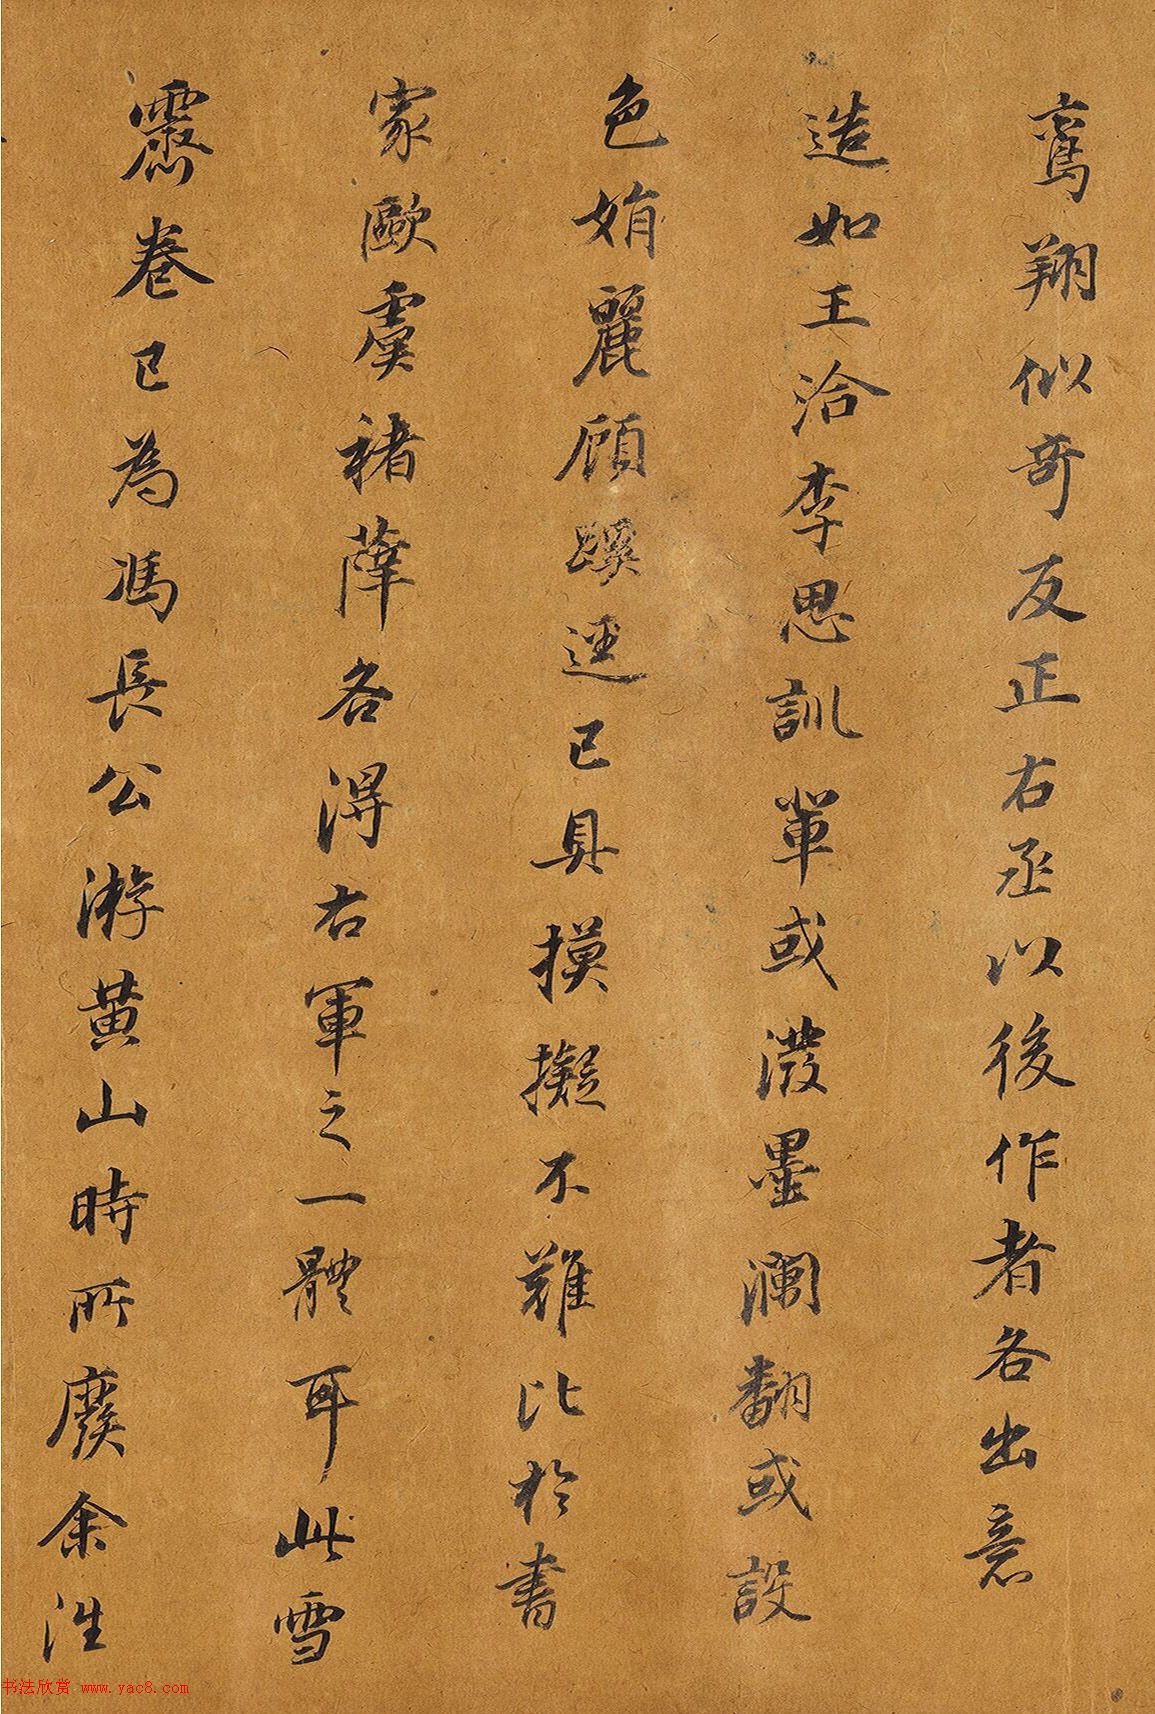 鸞翔似奇反正右丞以後作者各出意
造如王洽李思訓輩或潑墨瀾翻或設
色娟麗顧蹊逕已具摸擬不難比於書
家歐虞褚薛各得右軍之一體耳此雪
霽卷已為馮長公游黃山時所廢余往
书法欣赏 www.yac8.com